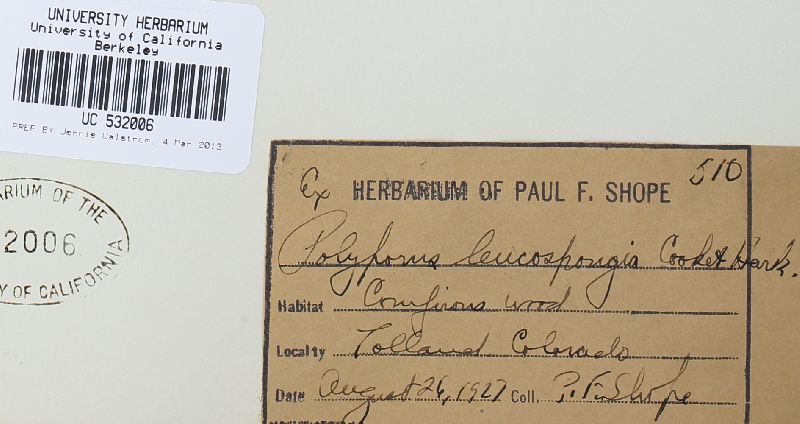 UNIVERSITY HERBARIUM
University of California
Berkeley
UC 532006
PREP BY Jennie Walstrom, 4 Mar 2013
ARIUM OF THE
2006
Y OF CALIFORNIA
Ex HERBARIUM OF PAUL F. SHOPE 510
Polyporus leucospongia Cooke & Hark.
Habitat Coniferous wood
Locality Tolland Colorado
Date August 26, 1927 Coll. P. F. Shope